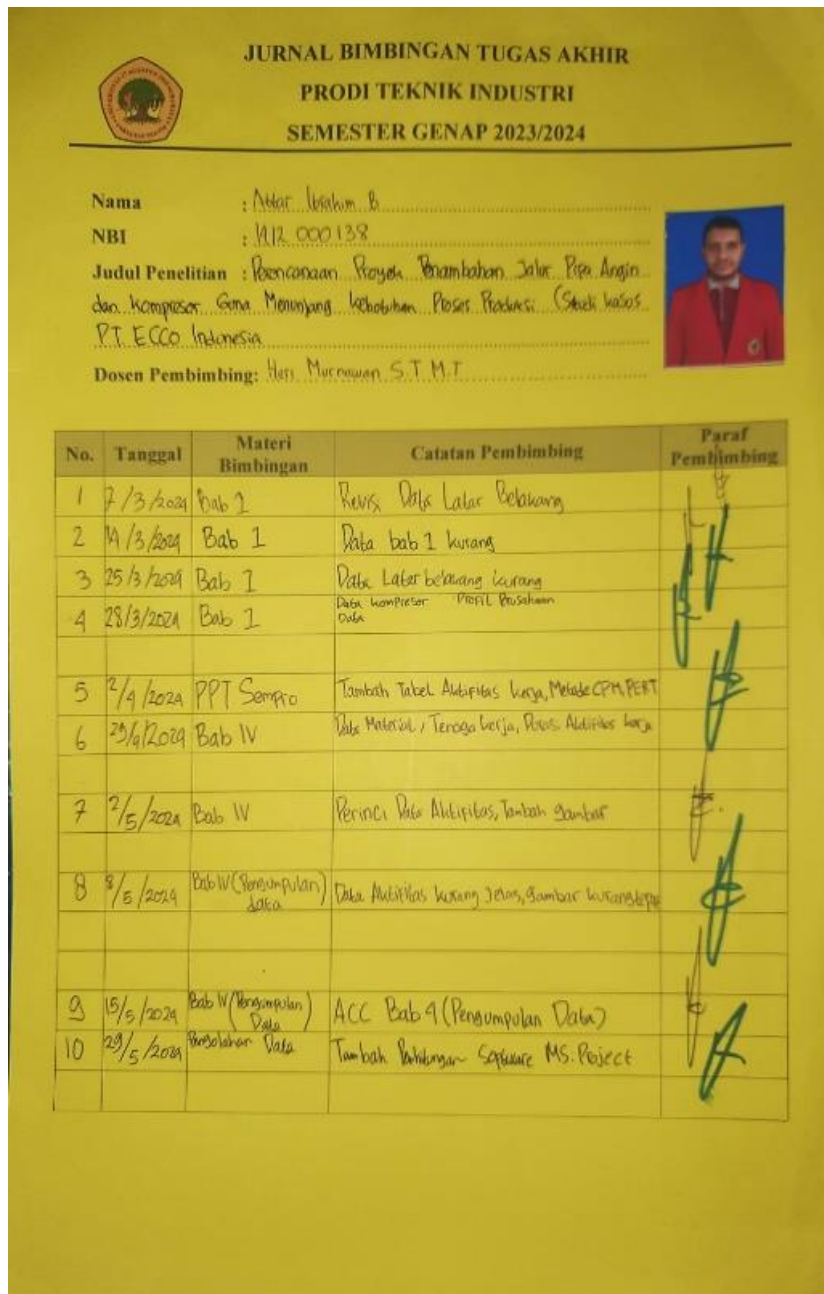 JURNAL BIMBINGAN TUGAS AKHIR
PRODI TEKNIK INDUSTRI
SEMESTER GENAP 2023/2024
Nama : Ibrahim B
NBI : 1412 000138
Judul Penelitian : Perencanaan Proyek Penambahan Jalur Pipa Angin
dan Kompresor Guna Menunjang Kebutuhan Proses Produksi (Studi kasus
PT. ECCO Indonesia
Dosen Pembimbing: Heri Murnawan S.T M.T
No. Tanggal Materi Bimbingan Catatan Pembimbing Paraf Pembimbing
1 7/3/2024 Bab 1 Revisi Data Latar Belakang
2 14/3/2024 Bab 1 Data bab 1 kurang
3 25/3/2024 Bab 1 Data Latar belakang kurang
4 28/3/2024 Bab 1 Data kompresor Profil Perusahaan
Data
5 2/4/2024 PPT Sempro Tambah Tabel Aktifitas kerja, Metode CPM, PERT
6 29/4/2024 Bab IV Data Material, Tenaga kerja, Aktifitas kerja
7 2/5/2024 Bab IV Perinci Data Aktifitas, Tambah gambar
8 8/5/2024 Bab IV (Pengumpulan) data Data Aktifitas kurang Jelas, gambar kurang
9 15/5/2024 Bab IV (Pengumpulan) Data ACC Bab 4 (Pengumpulan Data)
10 29/5/2024 Pengolahan Data Tambah Perhitungan Software MS. Project